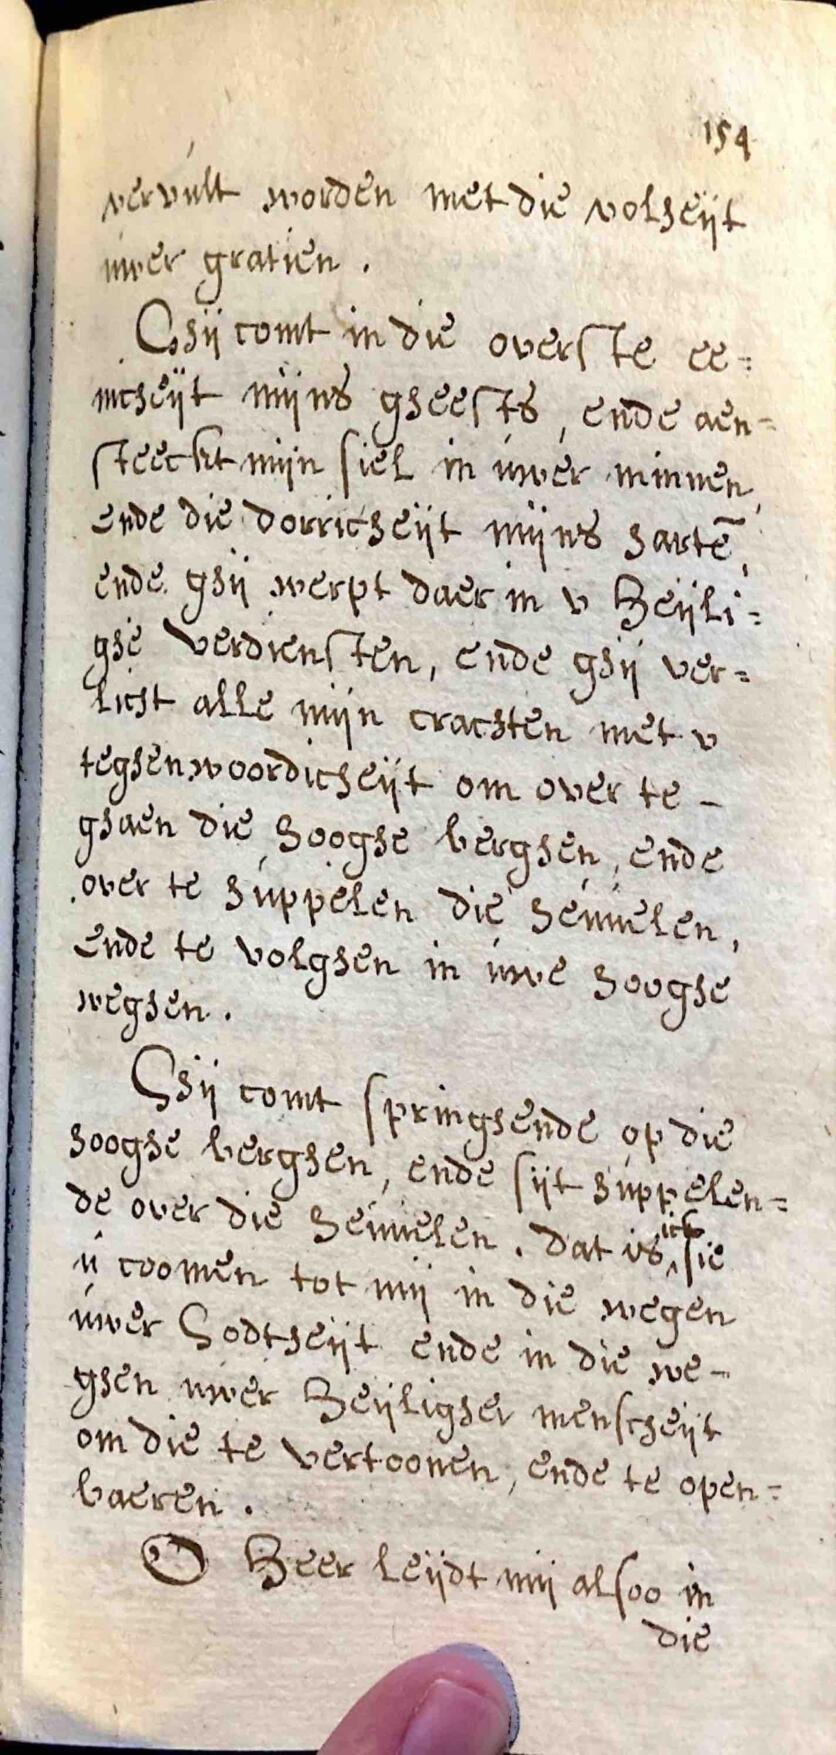 154
vervúlt worden met die volheijt
úwer gratien .
Ghij comt in die overste ee=
nicheijt mijns gheests, ende aen=
steeckt mijn siel in úwer minnen,
ende die dorricheijt mijns hartē,
ende ghij werpt daer in v Heijli=
ghe verdiensten, ende ghij ver=
licht alle mijn crachten met v
teghenwoordicheijt om over te -
ghaen die hooghe berghen, ende
over te húppelen die heúúelen,
ende te volghen in úwe hooghe
weghen .
Ghij comt springhende op die
hooghe berghen, ende sijt húppelen=
de over die heúúelen . dat is, ick sie
ú coomen tot mij in die wegen
úwer Godtheijt ende in die we-
ghen úwer Heijligher menscheijt
om die te vertoonen, ende te open=
baeren .
O Heer leijdt mij alsoo in
die